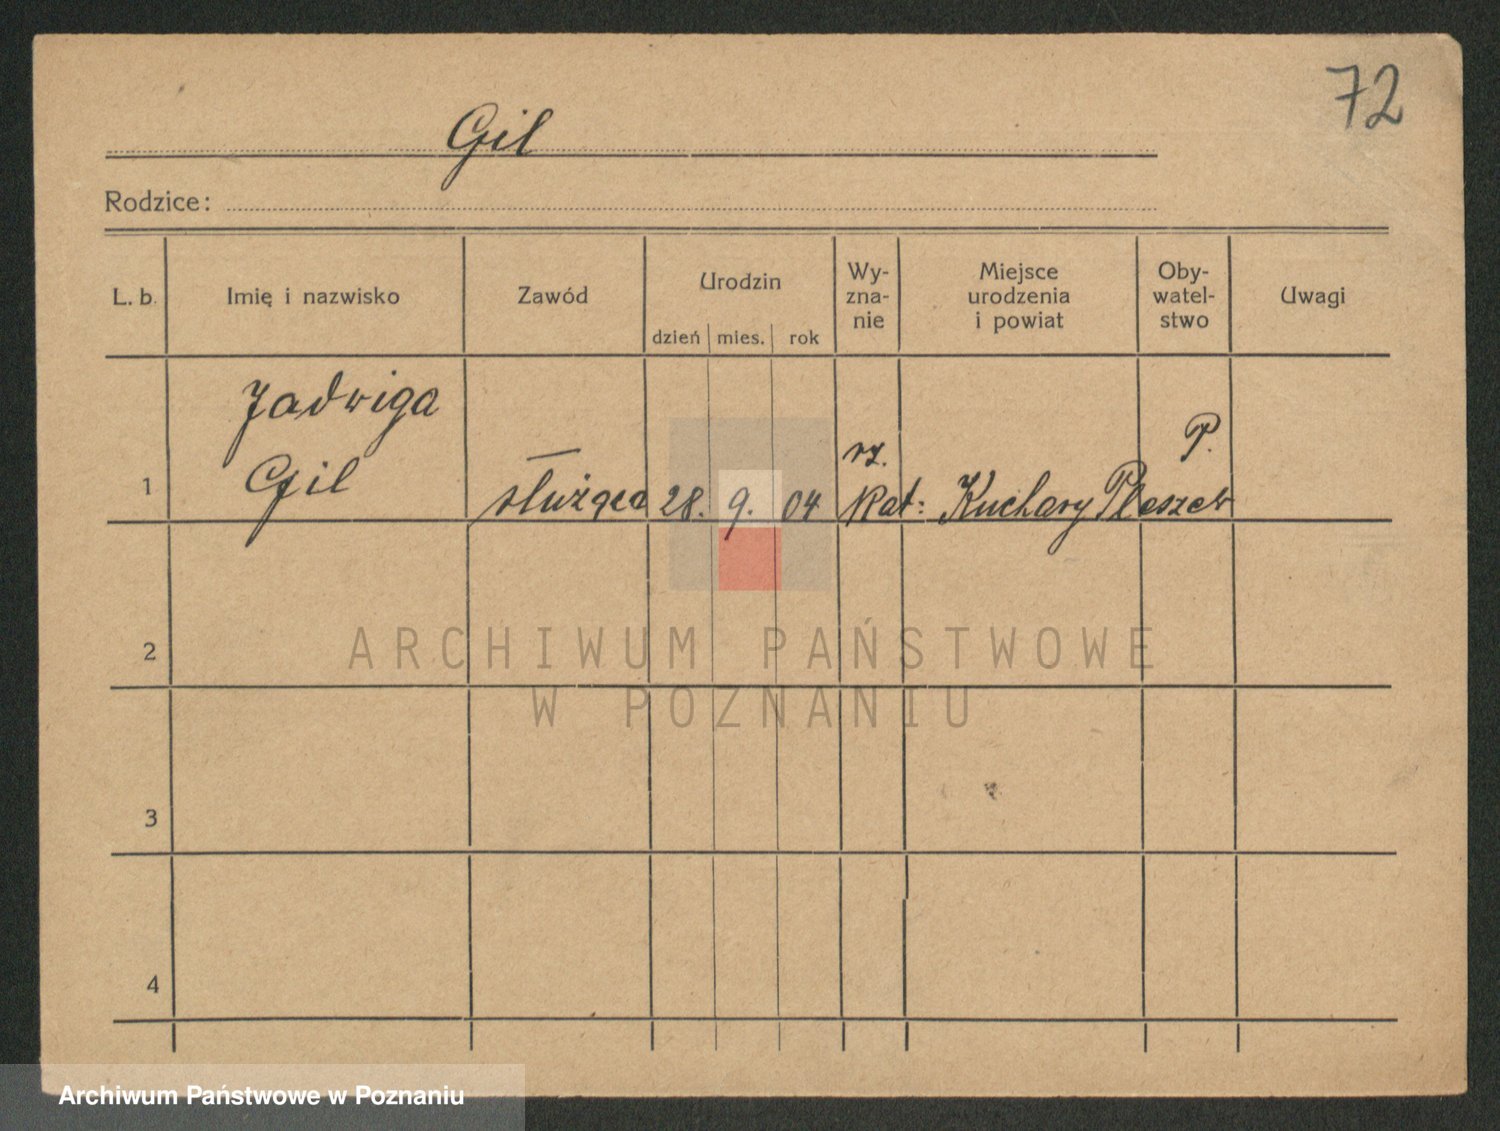 72
Gil
Rodzice:
L. b. Imię i nazwisko Zawód Urodzin dzień mies. rok Wy-
zna-
nie Miejsce
urodzenia
i powiat Oby-
watel-
stwo Uwagi
1 Jadwiga
Gil służąca 28. 9. 04 rz.
kat: Kuchary Pleszew P.
2
3
4
ARCHIWUM PAŃSTWOWE
W POZNANIU
Archiwum Państwowe w Poznaniu